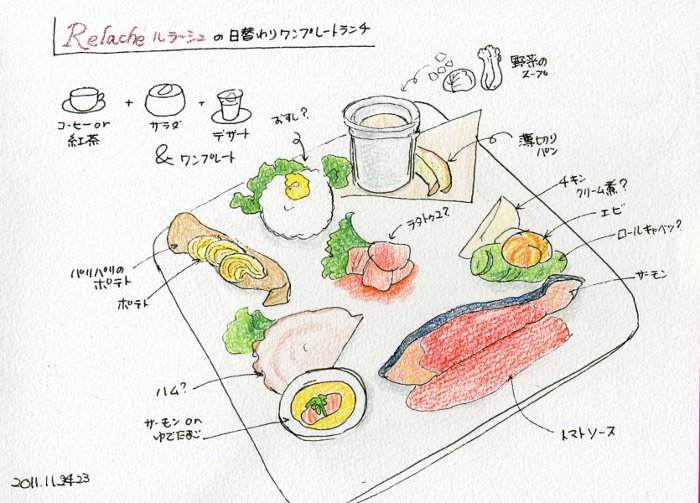 Relache ルラーシュ の 日替わりワンプレートランチ
野菜の
スープ
コーヒー or
紅茶
+
サラダ
+
デザート
& ワンプレート
おすし?
薄切り
パン
チキン
クリーム煮?
エビ
ロールキャベツ?
ラタトゥユ?
サーモン
パリパリの
ポテト
ポテト
ハム?
サーモン on
ゆでたまご
トマトソース